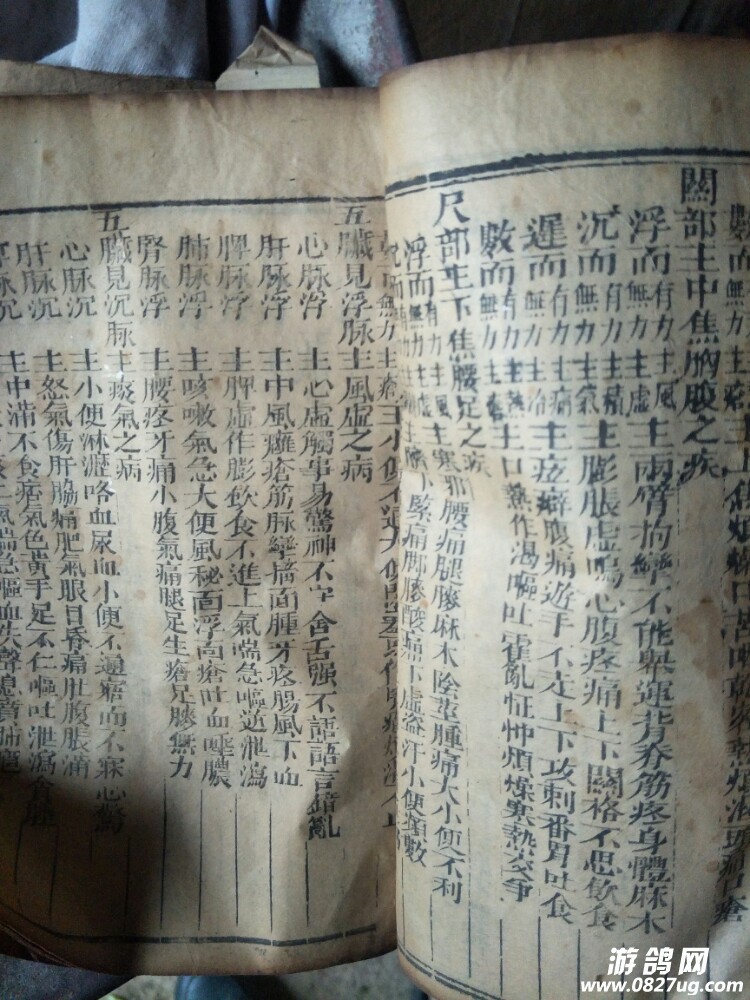 數而無力
關部主中焦胸腹之疾
浮而有力無力主風主虛主兩臂拘攣不能舉運背脊筋疼身體麻木
沉而有力無力主積主氣主膨脹虛鳴心腹疼痛上下關格不思飲食
遲而有力無力主痛主冷主痃癖腹痛遊手不定上下攻刺番胃吐食
數而有力無力主熱主瘡主口熱作渴嘔吐霍亂怔忡煩燥寒熱交爭
尺部主下焦腰足之疾
浮而有力無力主風主虛主寒邪腰痛腿膝麻木陰莖腫痛大小便不利
沉而有力無力主臍下緊痛脚膝酸痛下虛盜汗小便頻數
五臟見浮脉主風虛之病
心脉浮主心虛觸事易驚神不守舍舌强不語語言錯亂
肝脉浮主中風癱瘓筋脉攣搐面腫牙疼腸風下血
脾脉浮主脾虛作膨飲食不進上氣喘急嘔逆泄瀉
肺脉浮主咳嗽氣急大便風秘面浮面瘡吐血唾膿
腎脉浮主腰疼牙痛小腹氣痛腿足生瘡足膝無力
五臟見沉脉主痰氣之病
心脉沉主小便淋瀝咯血尿血小便不通寤而不寐心驚
肝脉沉主怒氣傷肝脇痛肥氣眼目昏痛肚腹脹滿
脉沉主中滿不食痞氣色黄手足不仁嘔吐泄瀉
游鸽网
www.0827ug.com